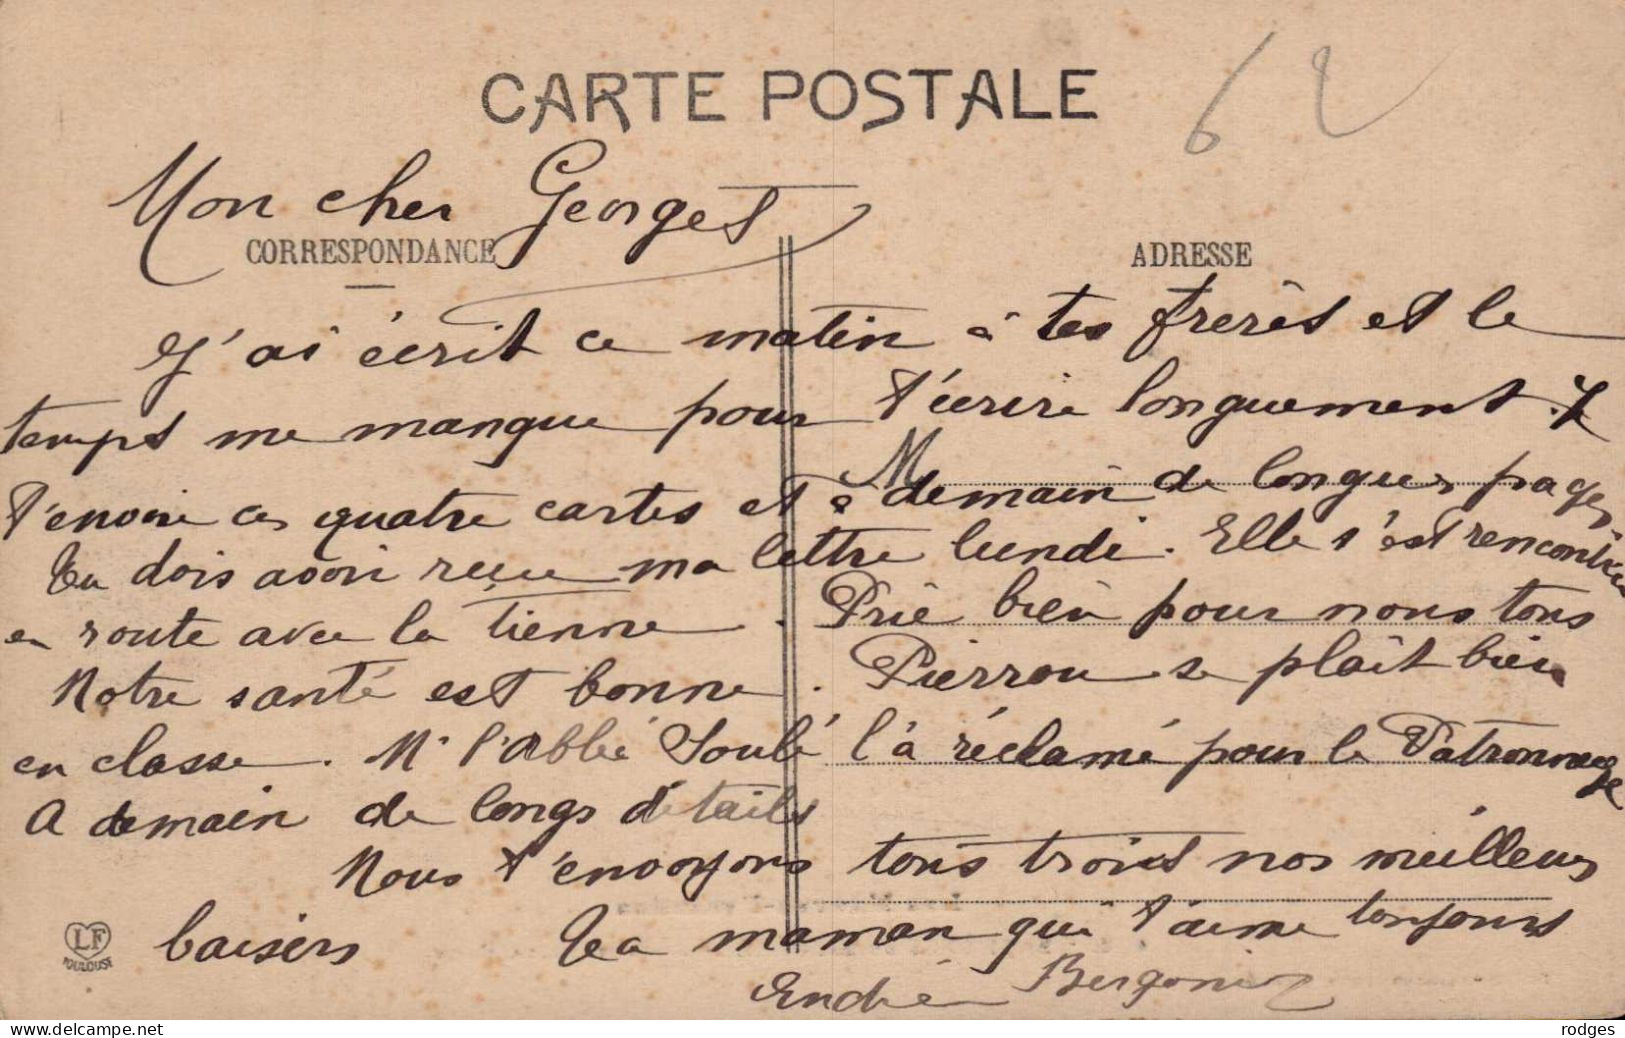 62
CARTE POSTALE
Mon cher Georges
CORRESPONDANCE
ADRESSE
J'ai écrit ce matin à tes frères et le
temps me manque pour t'écrire longuement. Je
M
t'envoie ces quatre cartes et à demain de longues pages
Tu dois avoir reçu ma lettre lundi. Elle s'est rencontrée
en route avec la tienne. Prie bien pour nous tous
Notre santé est bonne. Pierrou se plaît bien
en classe. Mr l'Abbé Soulé l'a réclamé pour le Patronnage
A demain de longs détails
Nous t'envoyons tous trois nos meilleurs
baisers Ta maman qui t'aime toujours
LF
TOULOUSE
Andrée
rodges
delcampe.net